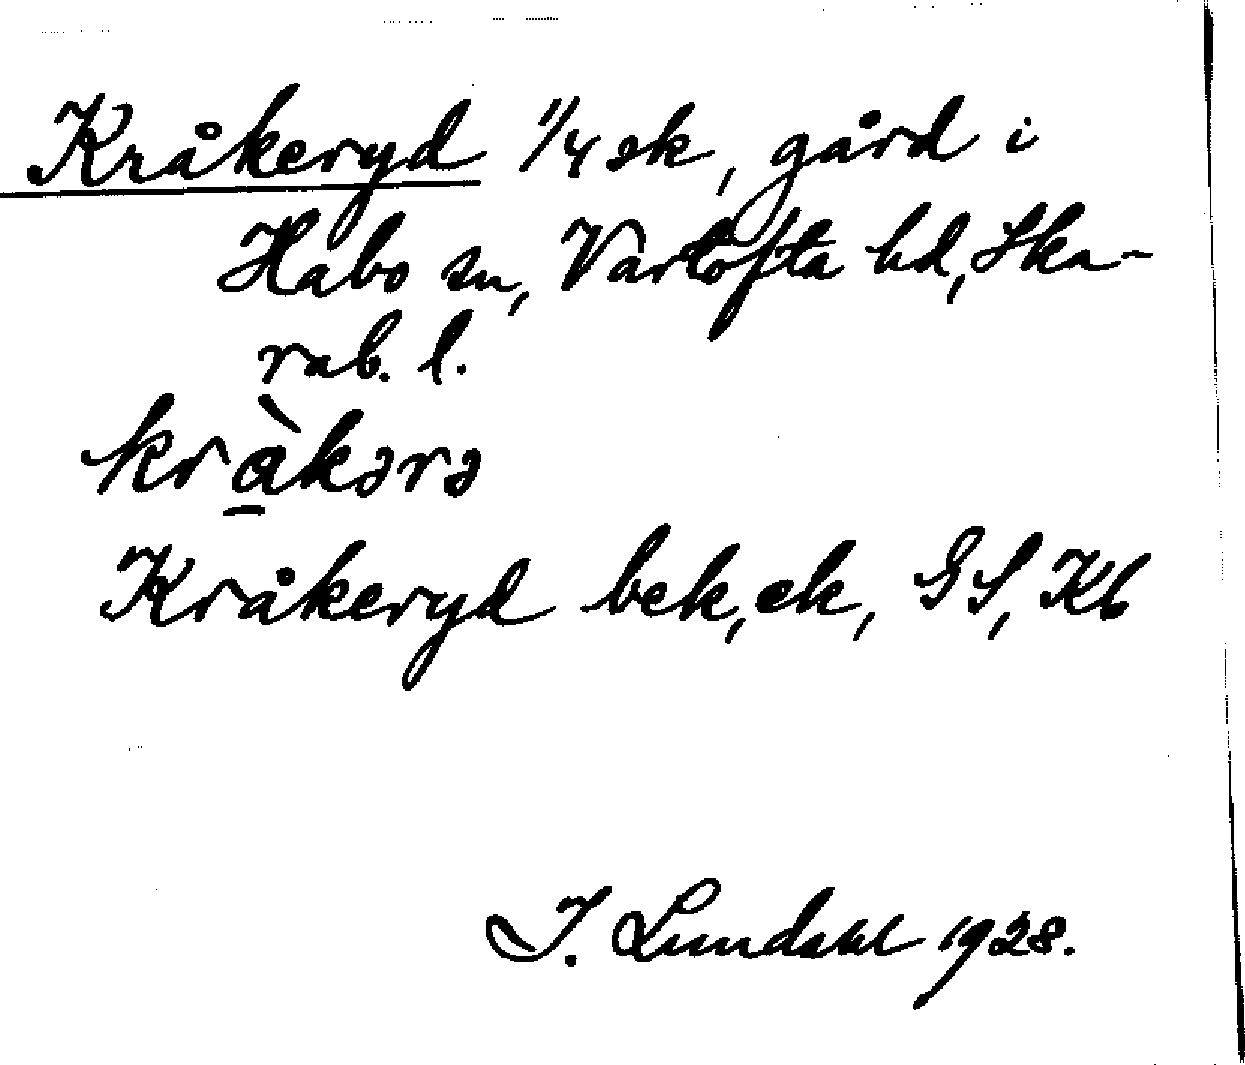 Kråkeryd 1/4 sk, gård i
Habo sn, Vartofta hd, Ska-
rab. l.
kràkərə
Kråkeryd bek, ek, GS, Kb
I. Lundahl 1928.